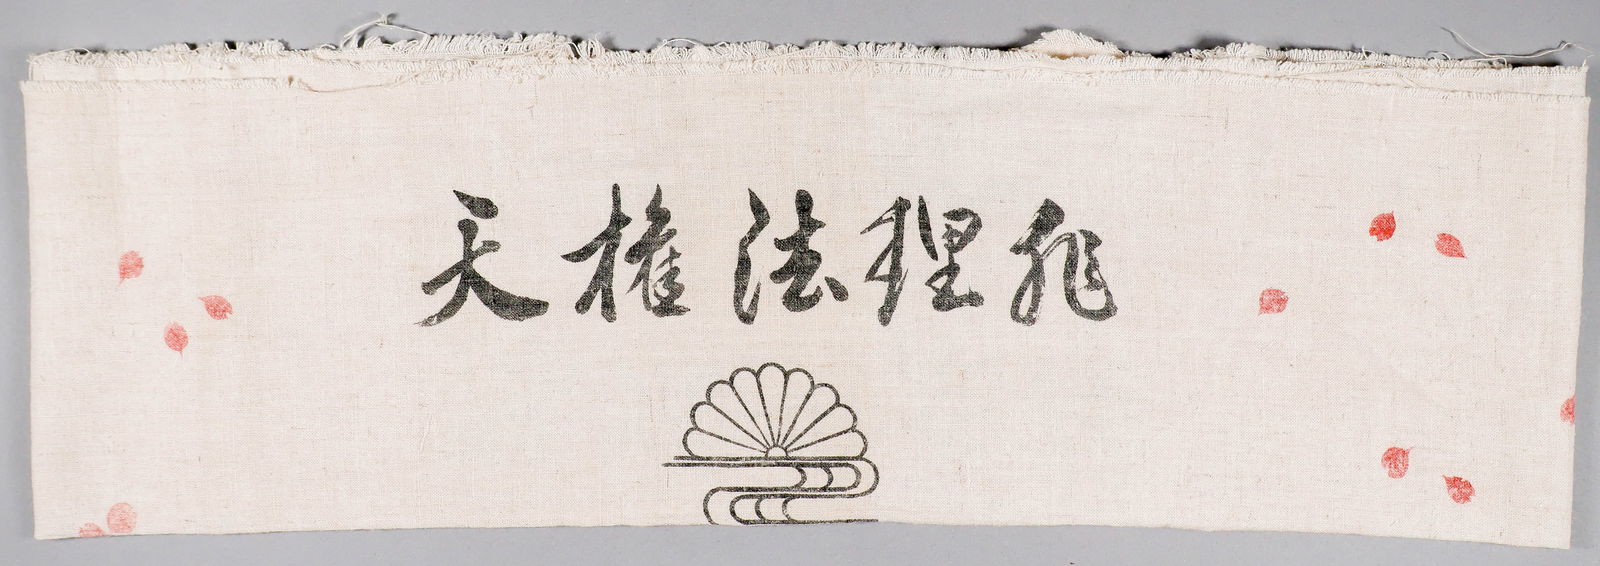 非理法権天